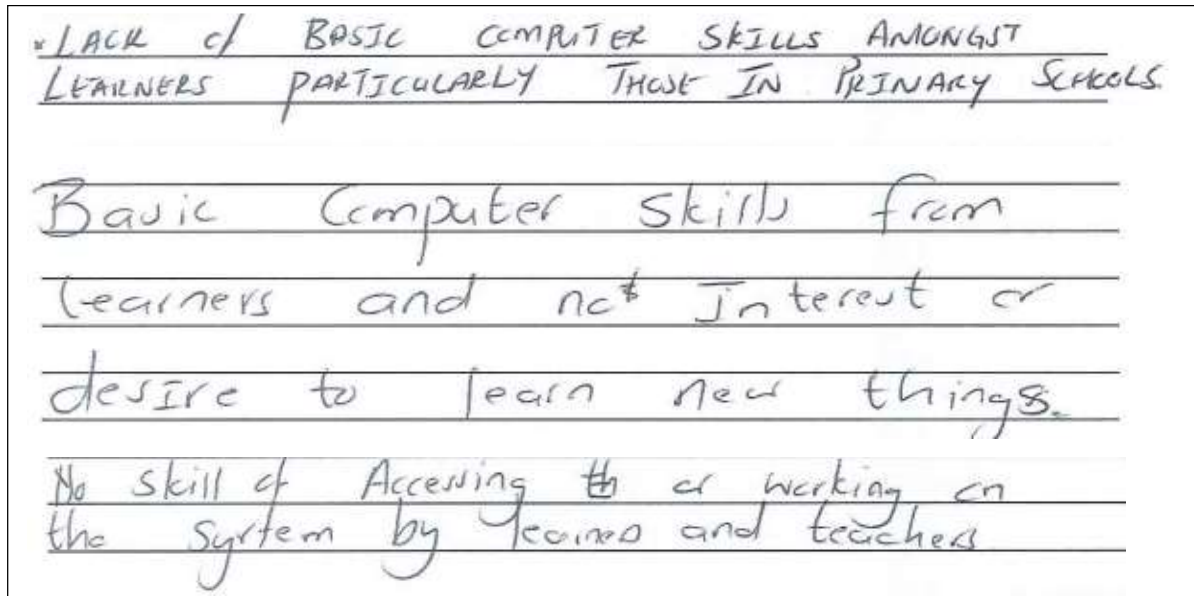 * LACK of BASIC COMPUTER SKILLS AMONGST
LEARNERS PARTICULARLY THOSE IN PRIMARY SCHOOLS.
Basic Computer skills from
learners and not Interest or
desire to learn new things.
No skill of Accessing or working on
the system by learners and teachers